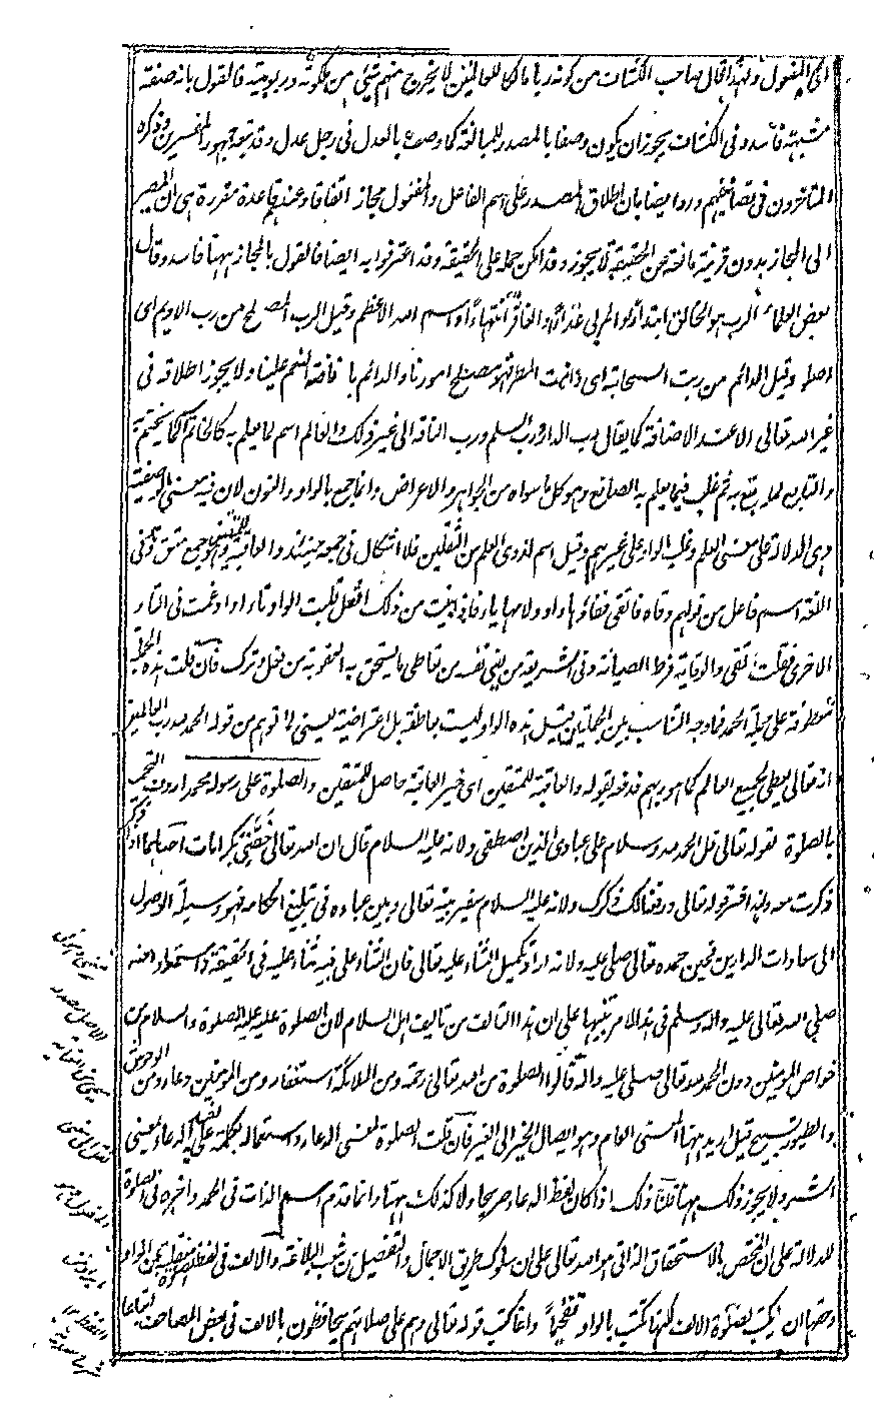 اى المفعول ولهذا قال صاحب الكشاف من كونه ربا مالكا للعالمين لا يخرج منهم شئ من ملكوته وربوبيته فالقول بانه صفة
مشبهة فاسد وفى الكشاف يجوز ان يكون وصفا بالمصدر للمبالغة كما وصف بالعدل فى رجل عدل وقد تبعه جمهور المفسرين وذكره
المتاخرون فى تصانيفهم ورد ايضا بان اطلاق المصدر على اسم الفاعل والمفعول مجاز اتفاقا وعندهم قاعدة مقررة هى ان المصير
الى المجاز بدون قرينة مانعة عن الحقيقة لا يجوز وقد امكن حمله على الحقيقة وقد اعترفوا به ايضا فالقول بالمجاز ههنا فاسد وقال
بعض العلماء الرب هو الخالق ابتداء والمربى غذاء والغافر انتهاء او اسم الله الاعظم وقيل الرب المصلح من رب الاديم اى
اصلحه وقيل الدائم من ربت السحابة اى دامت المطر فهو مصلح امورنا والدائم بافاضة النعم علينا ولا يجوز اطلاقه فى
غير الله تعالى الا عند الاضافة كما يقال رب الدار ورب السلم ورب الناقة الى غير ذلك والعالم اسم لما يعلم به كالخاتم لما يختم به
والتابل لما يتبع به ثم غلب فيما يعلم به الصانع وهو كل ما سواه من الجواهر والاعراض وانما جمع بالواو والنون لان فيه معنى الوصفية
وهى الدلالة على معنى العلم وغلب الواو على غيرهم وقيل اسم لذوى العلم من الثقلين فلا اشكال فى جمعه حينئذ والعاقبة للمتقين وهو جمع متق وفى
اللغة اسم فاعل من قولهم وقاه فاتقى ففاؤها واو ولامها ياء فاذا بنيت من ذلك افتعل قلبت الواو تاء وادغمت فى التاء
الاخرى فقلت اتقى والوقاية فرط الصيانة وفى الشريعة من يقى نفسه من تعاطى ما يستحق به العقوبة من فعل وترك فان قلت هذه الجملة
معطوفة على جملة الحمد فما وجه التناسب بين الجملتين قيل هذه الواو ليست بعاطفة بل اعتراضية يعنى لما توهم من قوله الحمد لله رب العالمين
انه تعالى يعطى لجميع العالم كما هو ربهم فدفعه بقوله والعاقبة للمتقين اى خير العاقبة حاصل للمتقين والصلوة على رسوله محمد اردف التحميد
بالصلوة لقوله تعالى قل الحمد لله وسلام على عباده الذين اصطفى ولانه عليه السلام قال ان الله تعالى خصنى بكرامات احدها اذا ذكر
ذكرت معه وبهذا فسر قوله تعالى ورفعنا لك ذكرك ولانه عليه السلام سفير بينه تعالى وبين عباده فى تبليغ احكامه فهو وسيلة الوصول
الى سعادات الدارين فحين حمده تعالى صلى عليه ولانه اراد تكميل الثناء عليه تعالى فان الثناء على نبيه ثناء عليه فى الحقيقة واستمدادا منه
صلى الله تعالى عليه وآله وسلم فى هذا الامر تنبيها على ان هذا التاليف من تاليف اهل السلام لان الصلوة عليه عليه الصلوة والسلام من
خواص المؤمنين دون الحمد لله تعالى صلى عليه وآله قالوا الصلوة من الله تعالى رحمة ومن الملائكة استغفار ومن المؤمنين دعاء ومن الوحوش
والطيور تسبيح قيل اريد ههنا المعنى العام وهو ايصال الخير الى الغير فان قلت الصلوة لمعنى الدعاء واستعماله بكلمة على لمعنى
الشر ولا يجوز ذلك ههنا قلنا ذلك اذا كان لفظ الدعاء صريحا ولا كذلك ههنا وانما قدم اسم الذات فى الحمد واخره فى الصلوة
للدلالة على ان المختص بالاستحقاق الذاتى هو الله تعالى على ان سلوك طريق الاجمال والتفصيل من شعب البلاغة والالف فى لفظ الصلوة منقلبة عن الواو
وحقها ان يكتب بصورة الالف لكنها تكتب بالواو تفخيما وانما كتب قوله تعالى وهم على صلاتهم يحافظون بالالف فى بعض المصاحف اتباعا